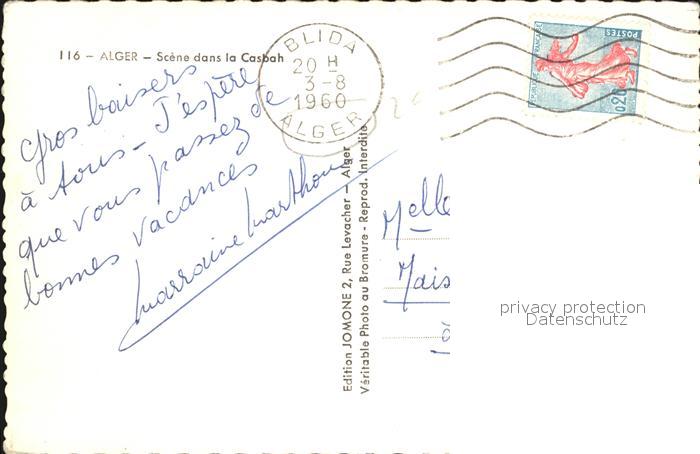 116 – ALGER – Scène dans la Casbah
BLIDA
20 H
3-8
1960
ALGER
POSTES
0,20
Gros baisers
à tous – J'espère
que vous passez de
bonnes vacances
Marraine Marthou
Edition JOMONE 2, Rue Levacher – Alger
Véritable Photo au Bromure - Reprod. Interdite
Melle
Mais
privacy protection
Datenschutz